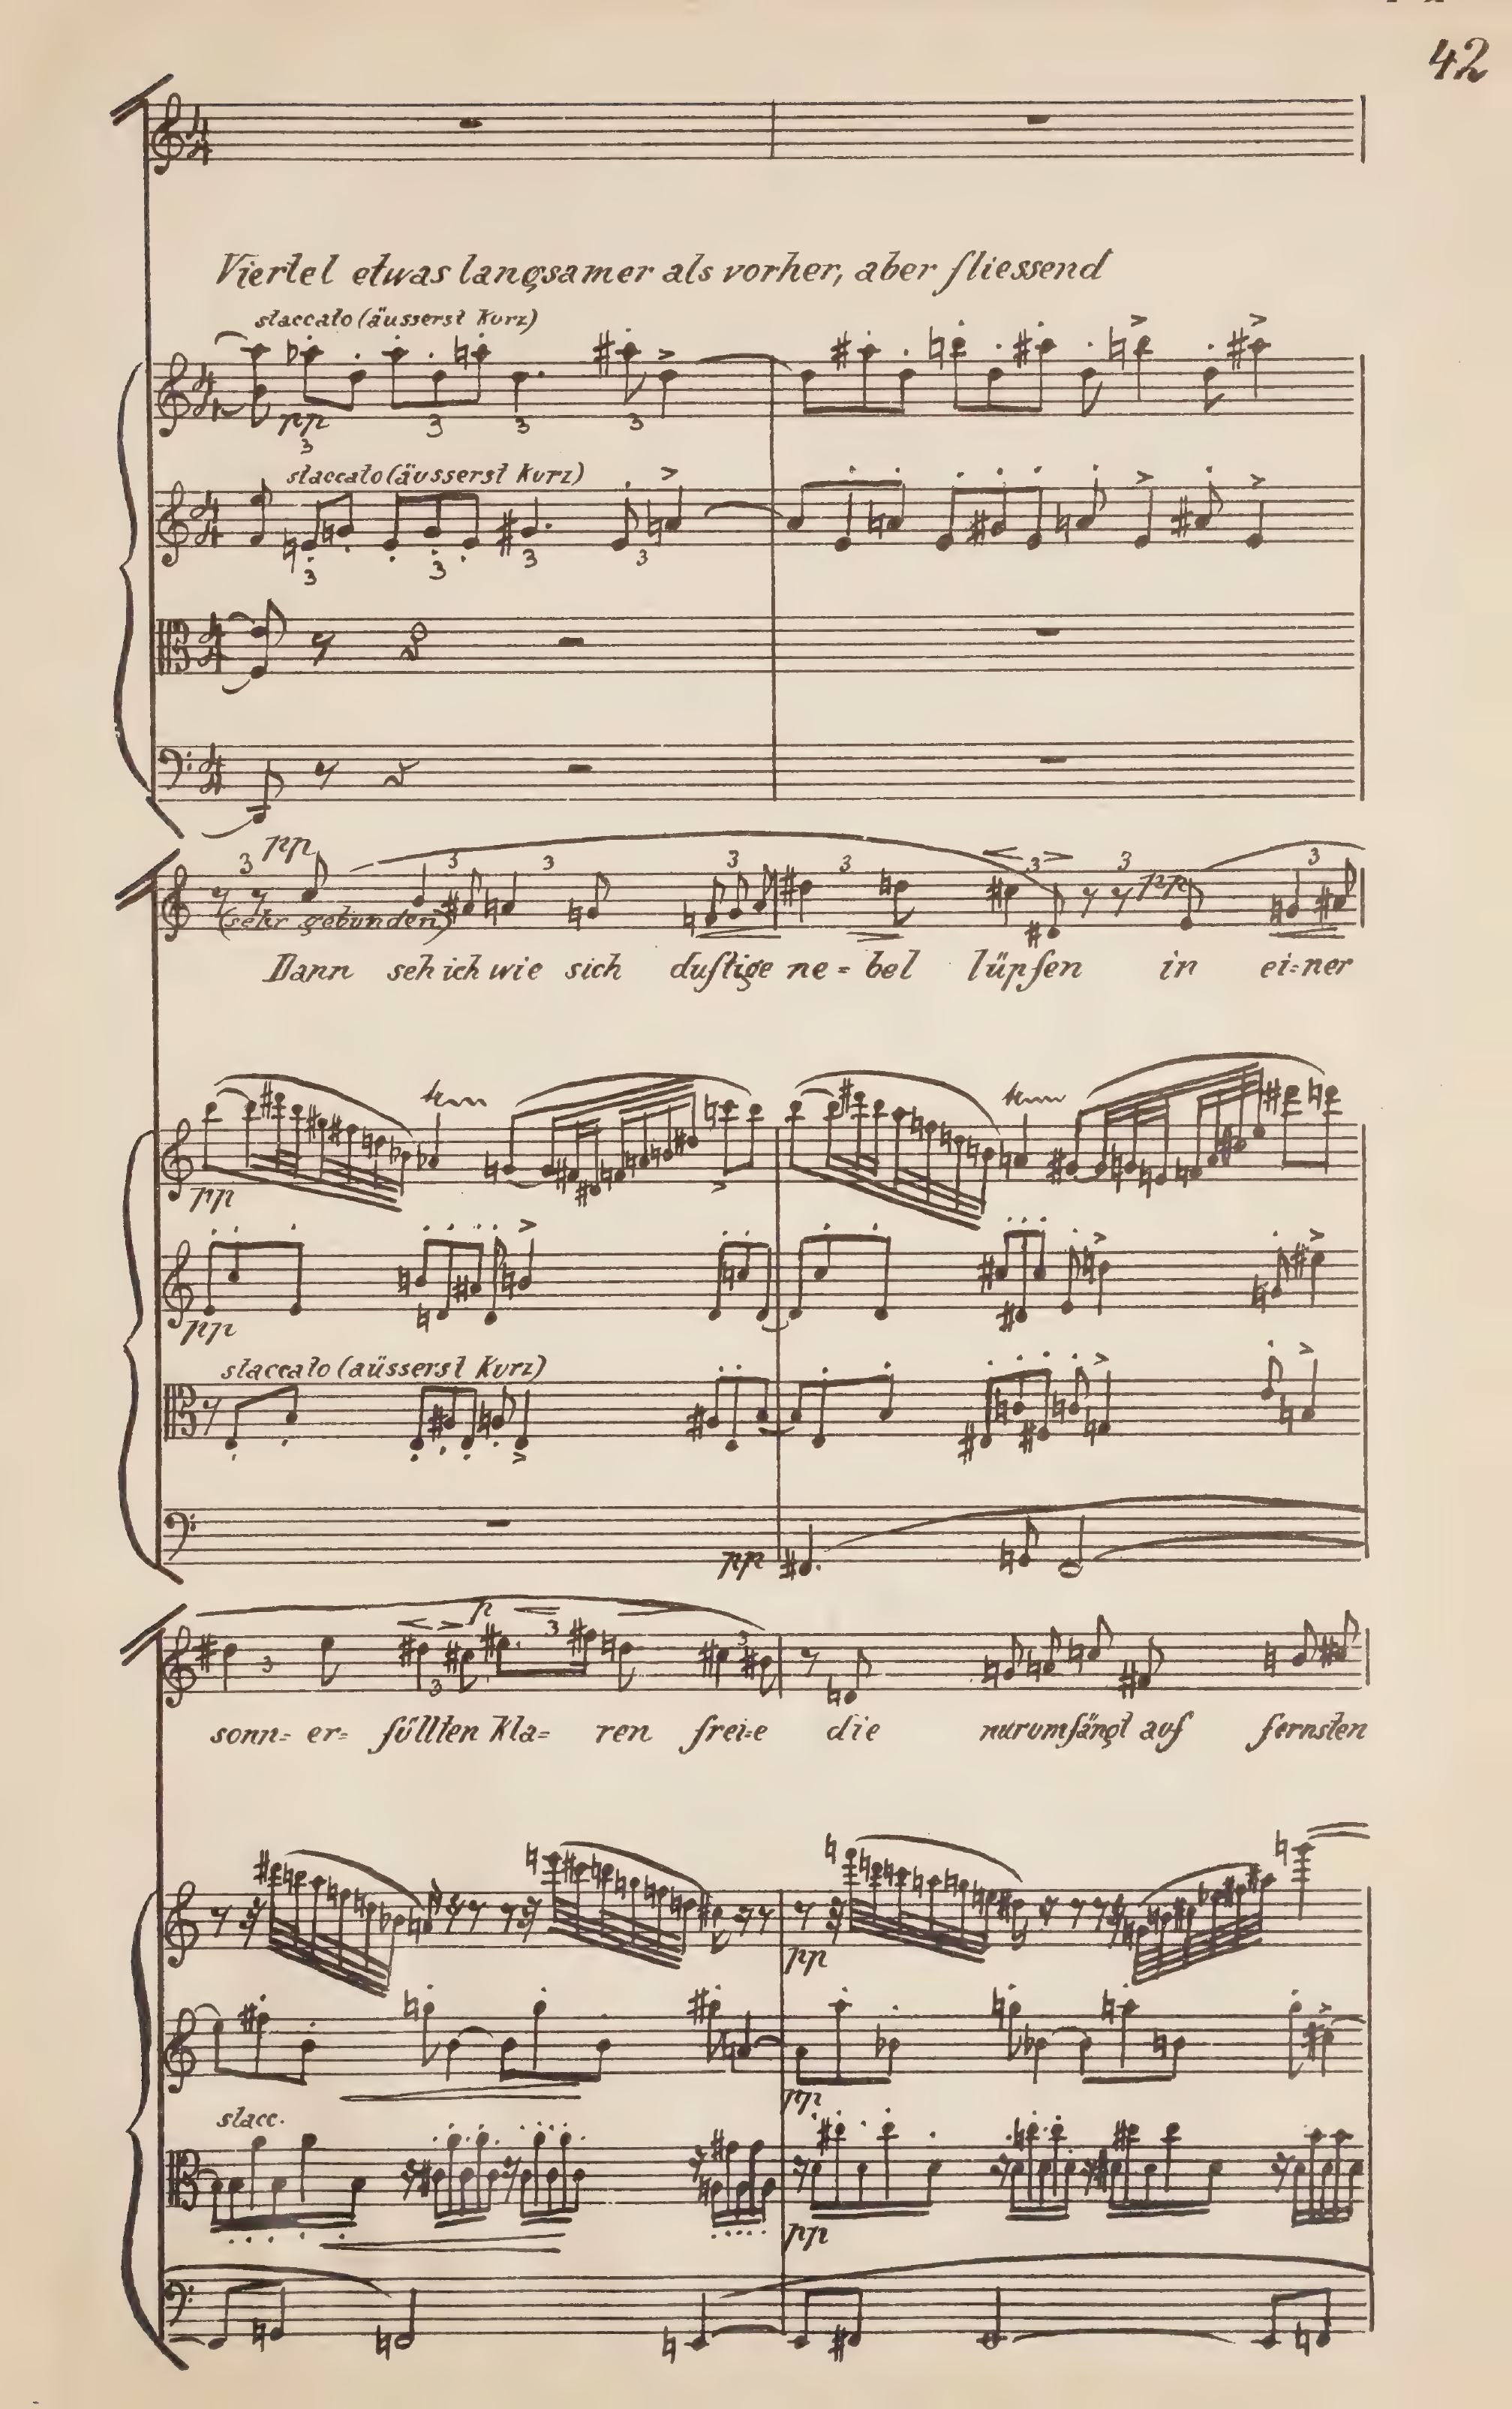 42
Viertel etwas langsamer als vorher, aber fliessend
staccato (äusserst kurz)
pp
3 3 3 3
staccato (äusserst kurz)
3 3 3 3
pp
3 3 3 3 3 3 3 3
pp
(sehr gebunden)
Dann seh ich wie sich duftige ne = bel lüpfen in ei=ner
pp
pp
staccato (aüsserst kurz)
pp
p
3 3 3 3
sonn= er= füllten kla= ren frei=e die nur umfängt auf fernsten
pp
pp
stacc.
pp